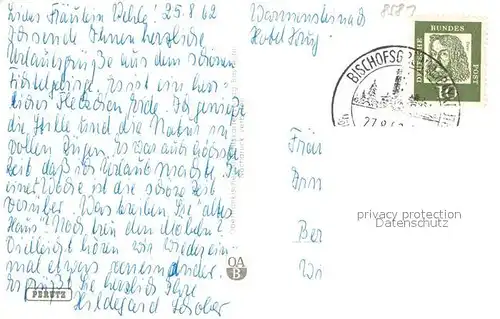 Liebes Fräulein 25.8.62
sende Ihnen herzliche
Urlaubsgrüße aus dem schönen
Fichtelgebirge. Es ist ein herr-
liches Fleckchen Erde. Ich genieße
die Stille und die Natur in
vollen Zügen. Es war auch höchste
Zeit daß ich Urlaub machte. In
einer Woche ist die schöne Zeit
vorüber. Was treiben Sie "altes
Haus"? Noch treu den
Vielleicht hören wir wieder ein-
mal etwas voneinander.
Es grüßt Sie herzlich Ihre
Hildegard
PERUTZ
OA
B
Warmensteinach
Hotel Krug
8587
DEUTSCHE BUNDESPOST
10
BISCHOFSGRÜN
Fräu
Ber
privacy protection
Datenschutz